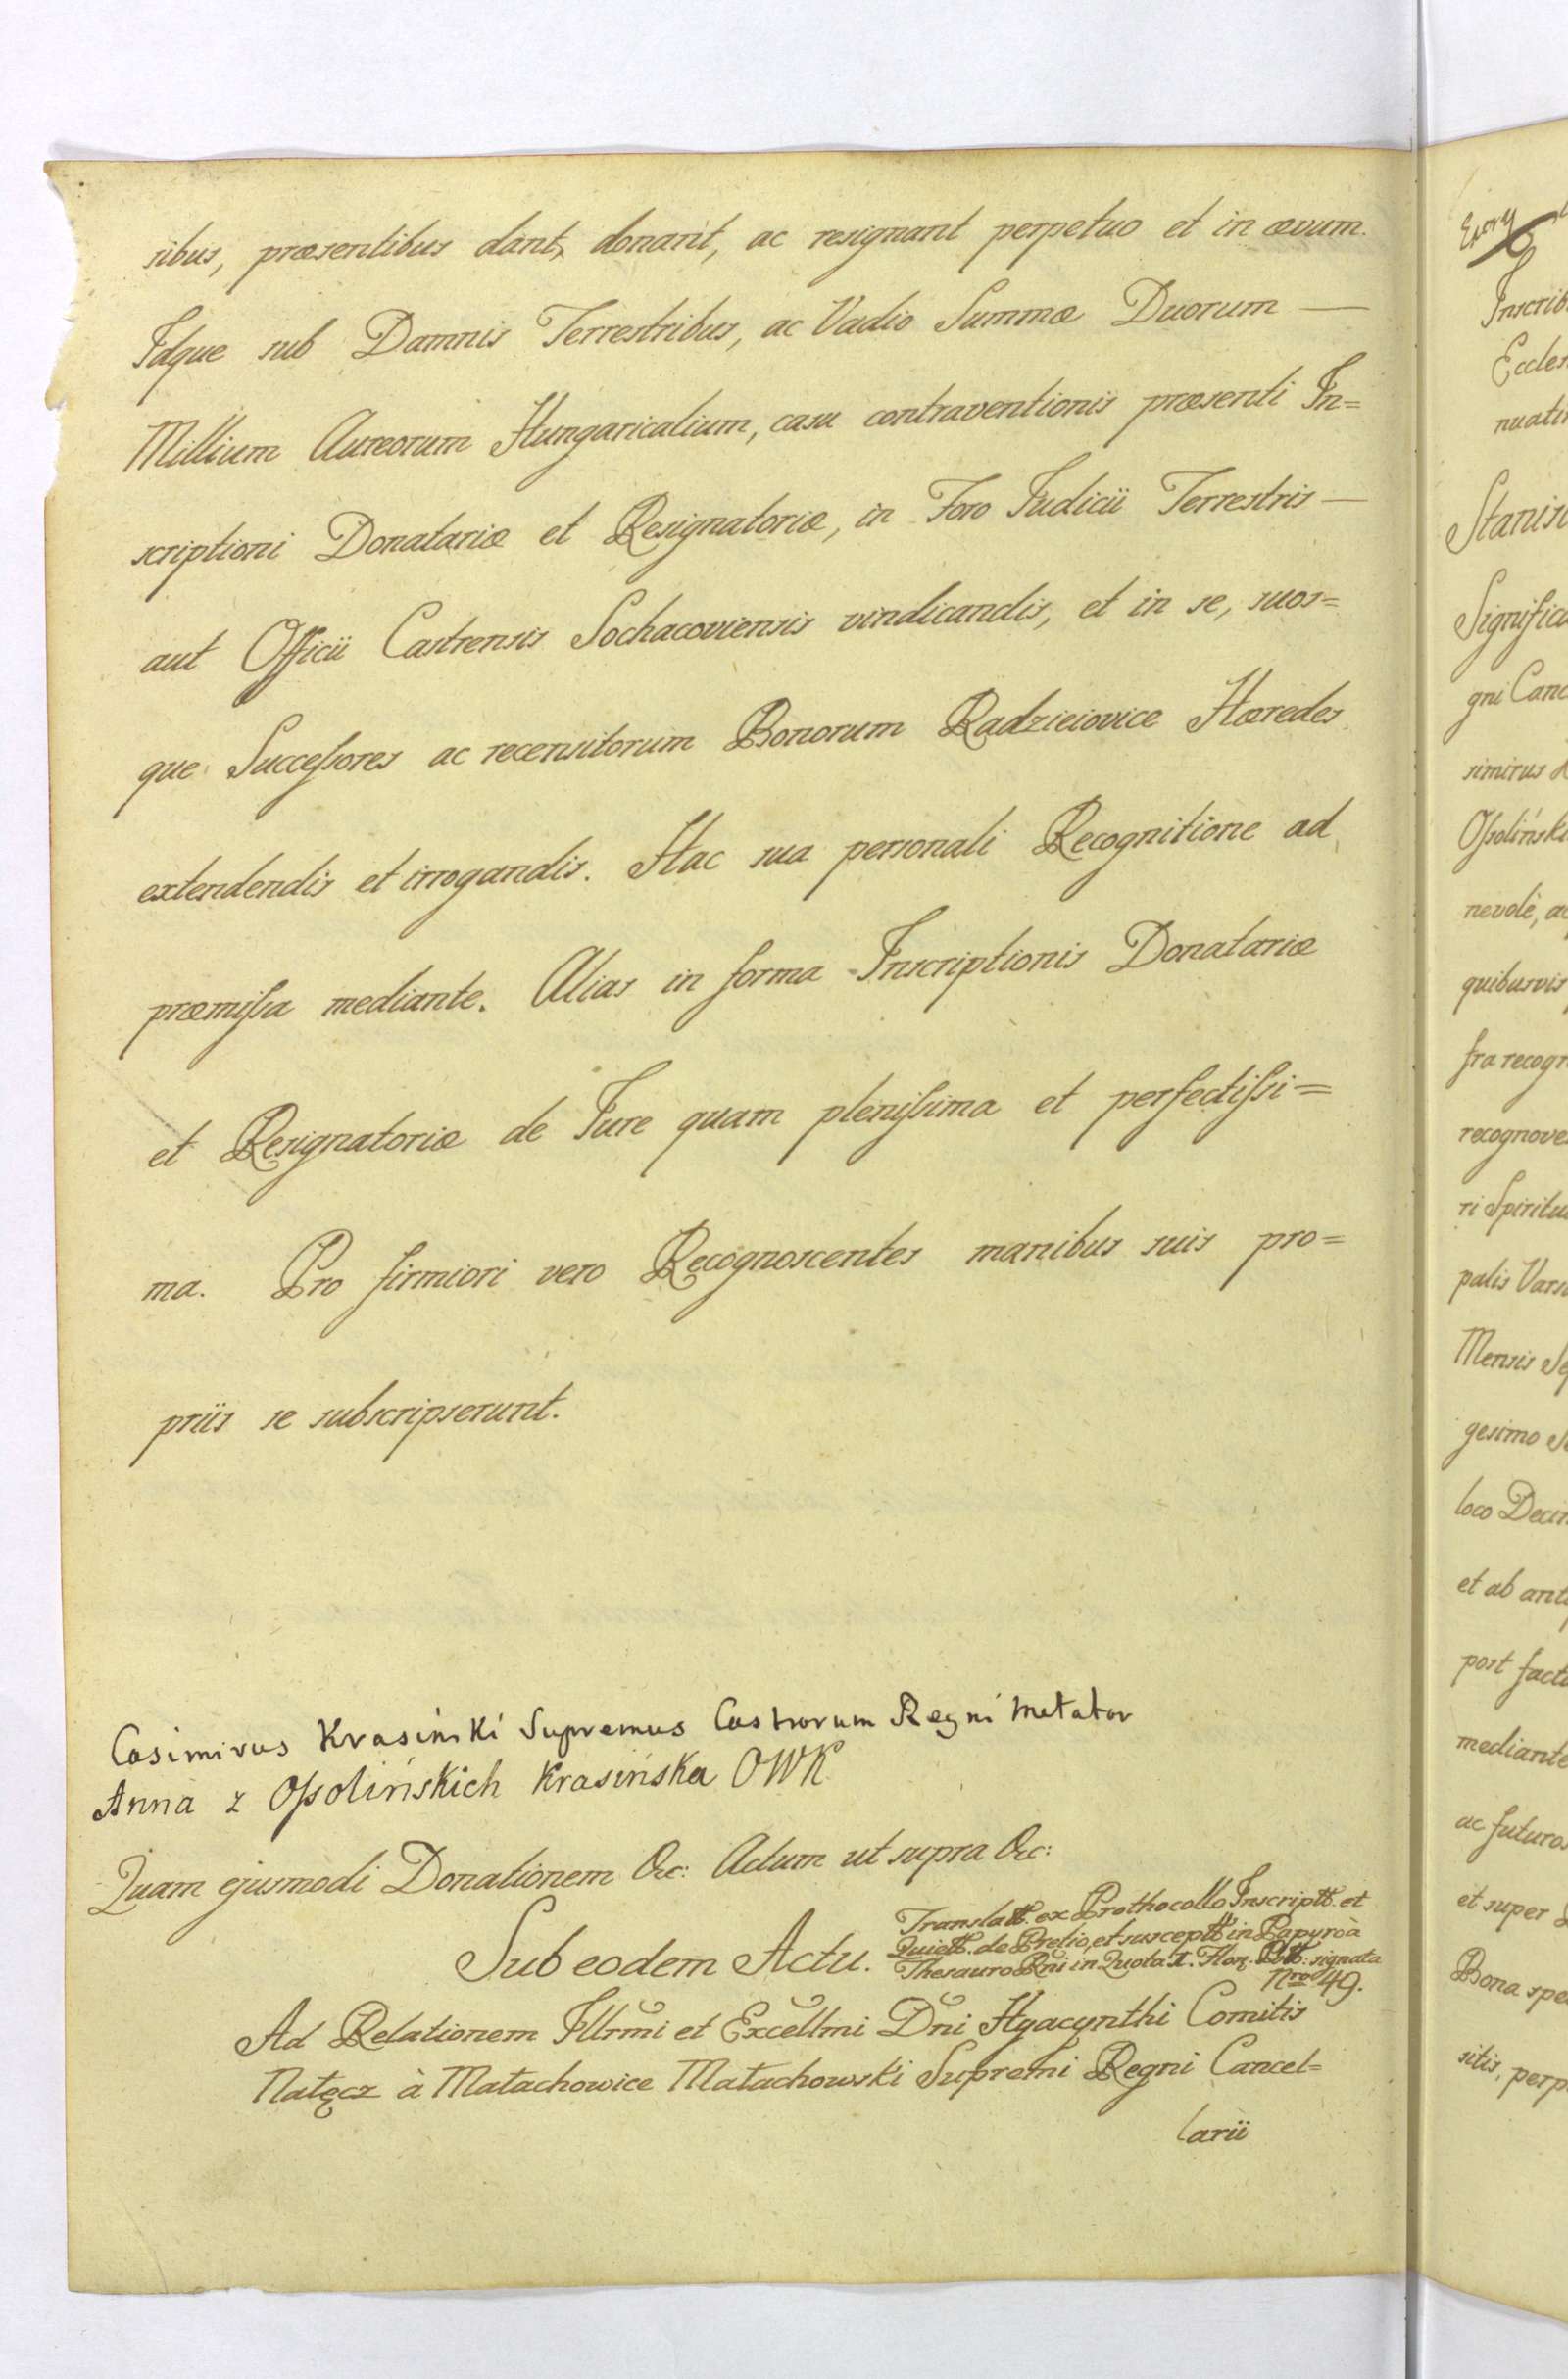 sibus, præsentibus dant, donant, ac resignant perpetuo et in ævum.
Idque sub Damnis Terrestribus, ac Vadio Summæ Duorum —
Millium Aureorum Hungaricalium, casu contraventionis præsenti In=
scriptioni Donatariæ et Resignatoriæ, in Foro Iudicii Terrestris —
aut Officii Castrensis Sochacoviensis vindicandis, et in se, suos=
que Successores ac recensitorum Bonorum Radzieiovice Hæredes
extendendis et irrogandis. Hac sua personali Recognitione ad
præmissa mediante. Alias in forma Inscriptionis Donatariæ
et Resignatoriæ de Iure quam plenissima et perfectissi=
ma. Pro firmiori vero Recognoscentes manibus suis pro=
priis se subscripserunt.
Casimirus Krasiński Supremus Castrorum Regni Metator
Anna z Ossolińskich Krasińska OWK
Quam ejusmodi Donationem &c: Actum ut supra &c:
Sub eodem Actu.
Translatt. ex Prothocollo Inscriptt. et
Quiett. de Prelio, et susceptt in Papyro à
Thesauro Rni in Quota 1. Flor. Poll: signata
Nro 49.
Ad Relationem Illrmi et Excellmi Dni Hyacynthi Comitis
Nałęcz à Małachowice Małachowski Supremi Regni Cancel=
larii
Inscrib
Eccles
nuati
Stanis
Significa
gni Canc
simirus
Ossolińsk
nevolè, ac
quibusvis
fra recogn
recognove
ri Spiritu
palis Vars
Mensis Se
gesimo
loco Deci
et ab ant
post fact
mediante
ac futuros
et super
Bona spe
sitis, perp